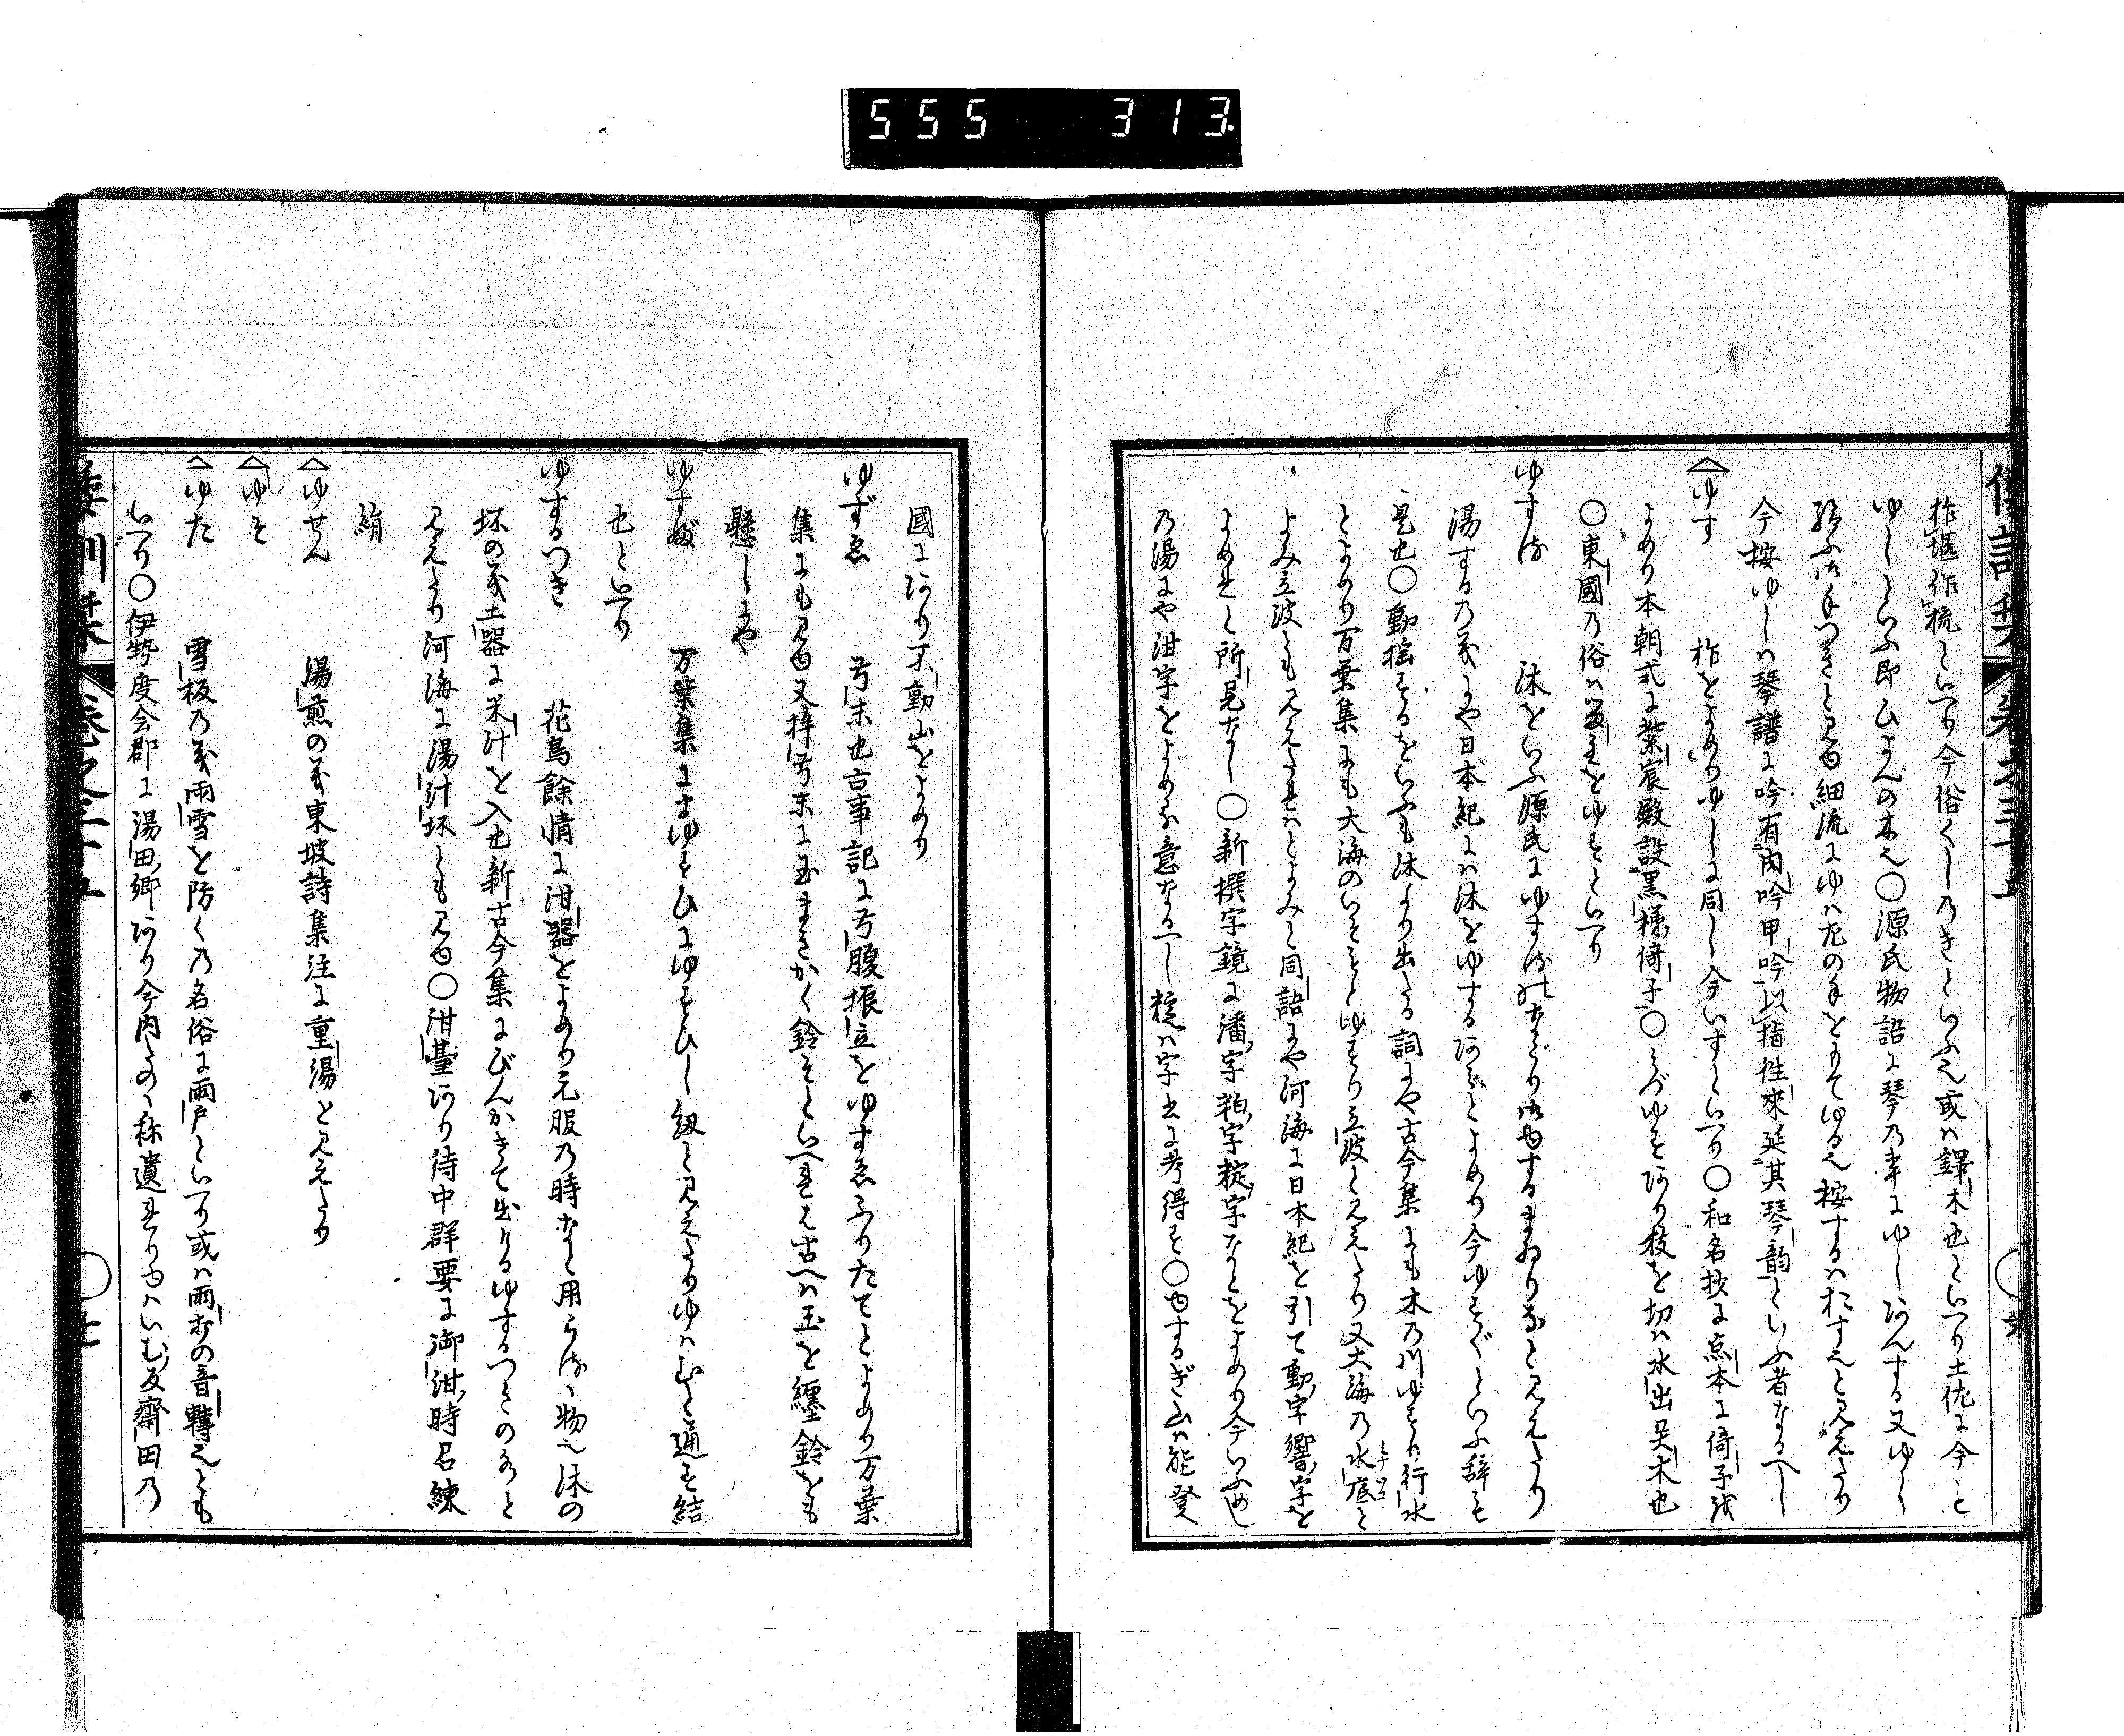 555 313
柞堪作梳といへり今俗くしのきといふ也或ハ鐸木也といへり土佐に今と
ゆしといふ即ひよんの木也〇源氏物語に琴の事にゆしあんする又ゆし
給ふ御手つきと見ゆ細流にゆハ左の手をもてゆる也按するハおす也と見えたり
今按ゆしハ琴譜に吟有内吟甲吟以指往來延其琴韻といふ者なるへし
ゆす 柞をよめりゆしに同し今いすといへり〇和名抄に点本に倚子
よめり本朝式に紫宸殿設黒柿倚子〇ゆすあり枝を切ハ水出具木也
〇東國の俗ハをゆすといへり
ゆする 沐をいふ源氏にゆするなとゆするまゐりなと見えたり
湯するの義にや日本紀にハ沐をゆするあみとよめり今ゆすぐといふ辞も
是也〇動揺するをいふも沐より出たる詞にや古今集にも木の川ゆすり行水
とよめり万葉集にも大海のいそもとゆすり立波と見えたり又大海の水底と
よみ立波とも見えたれハとよみと同語にや河海に日本紀を引て動字響字を
よめれと所見なし〇新撰字鏡に潘字粕字字なとをよめり今いふめし
の湯にや泔字をよめる意なるへしハ字書に考得す〇ゆするぎ山ハ能登
國にあり不動山をよめり
ゆずゑ 弓末也古事記に弓腹振立をゆすゑふりたてとよめり万葉
集にも見ゆ又梓弓末に玉まきかく鈴そといへれは古へハ玉を纏鈴をも
懸しにや
ゆすび 万葉集にまゆすひにゆすひし紐と見えたりゆハむと通す結
也といへり
ゆするつき 花鳥餘情に泔器をよめり元服の時なと用らるゝ物也沐の
坏の義土器に米汁を入也新古今集にびんかきて出けるゆするつきの水と
見えたり河海に湯汁坏とも見ゆ〇泔臺あり侍中群要に御泔時召練
絹
ゆせん 湯煎の義東坡詩集注に重湯と見えたり
ゆそ
ゆた 雪板の義雨雪を防くの名俗に雨戸といへり或ハ雨おの音轉也とも
いへり〇伊勢度会郡に湯田郷あり今内との称遺れりゆハいむ反齋田の
倭訓栞 巻之三十五 〇七